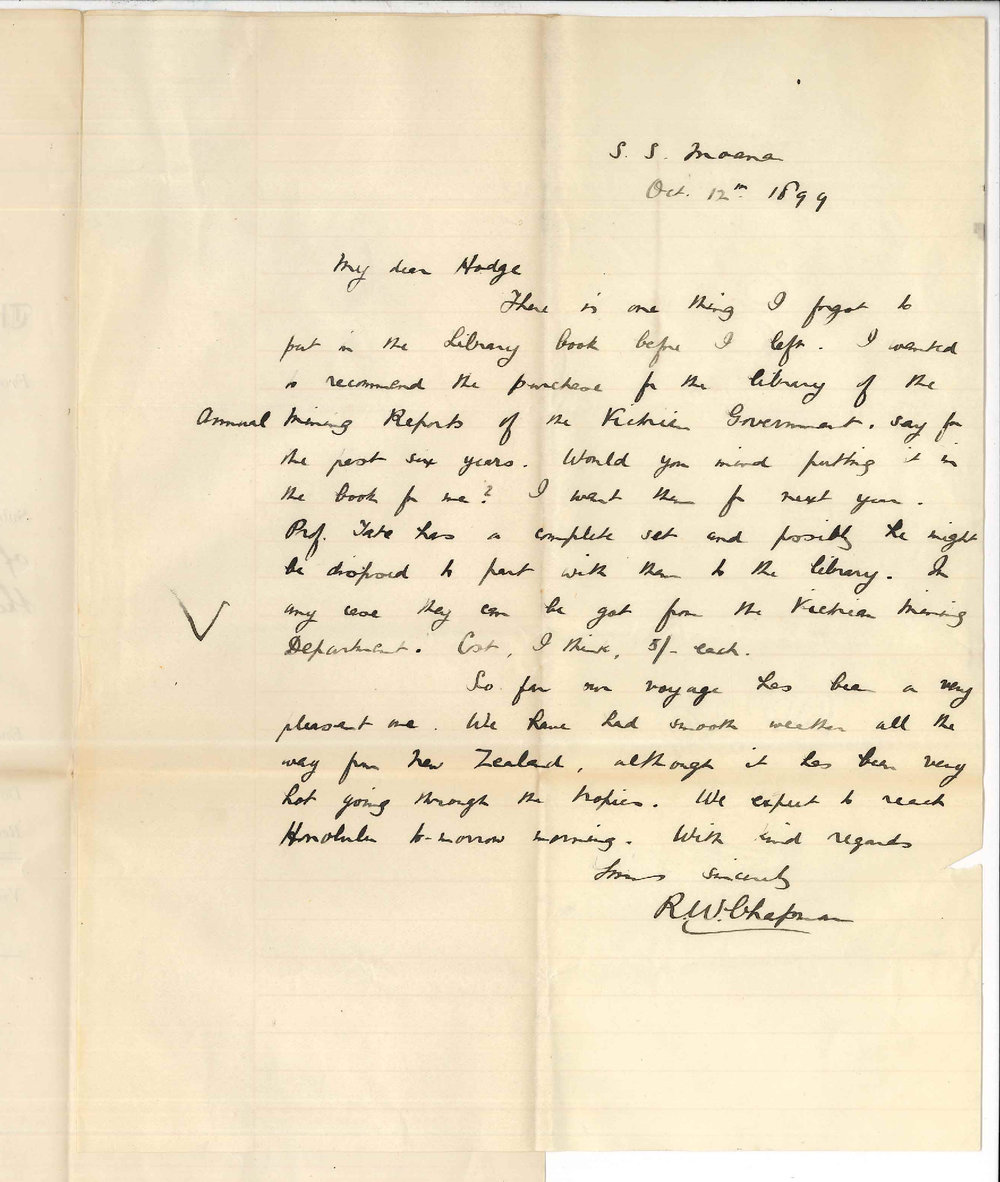 S. S. Moana
Oct. 12th 1899
My dear Hodge
There is one thing I forgot to
put in the Library book before I left. I wanted
to recommend the purchase for the library of the
Annual Mining Reports of the Victorian Government. say for
the past six years. Would you mind putting it in
the book for me? I want them for next year.
Prof. Tate has a complete set and possibly he might
be disposed to part with them to the library. In
any case they can be got from the Victorian Mining
Department. Cost, I think, 5/- each.
So far our voyage has been a very
pleasant one. We have had smooth weather all the
way from New Zealand, although it has been very
hot going through the tropics. We expect to reach
Honolulu to-morrow morning. With kind regards
Yours sincerely
R.W. Chapman